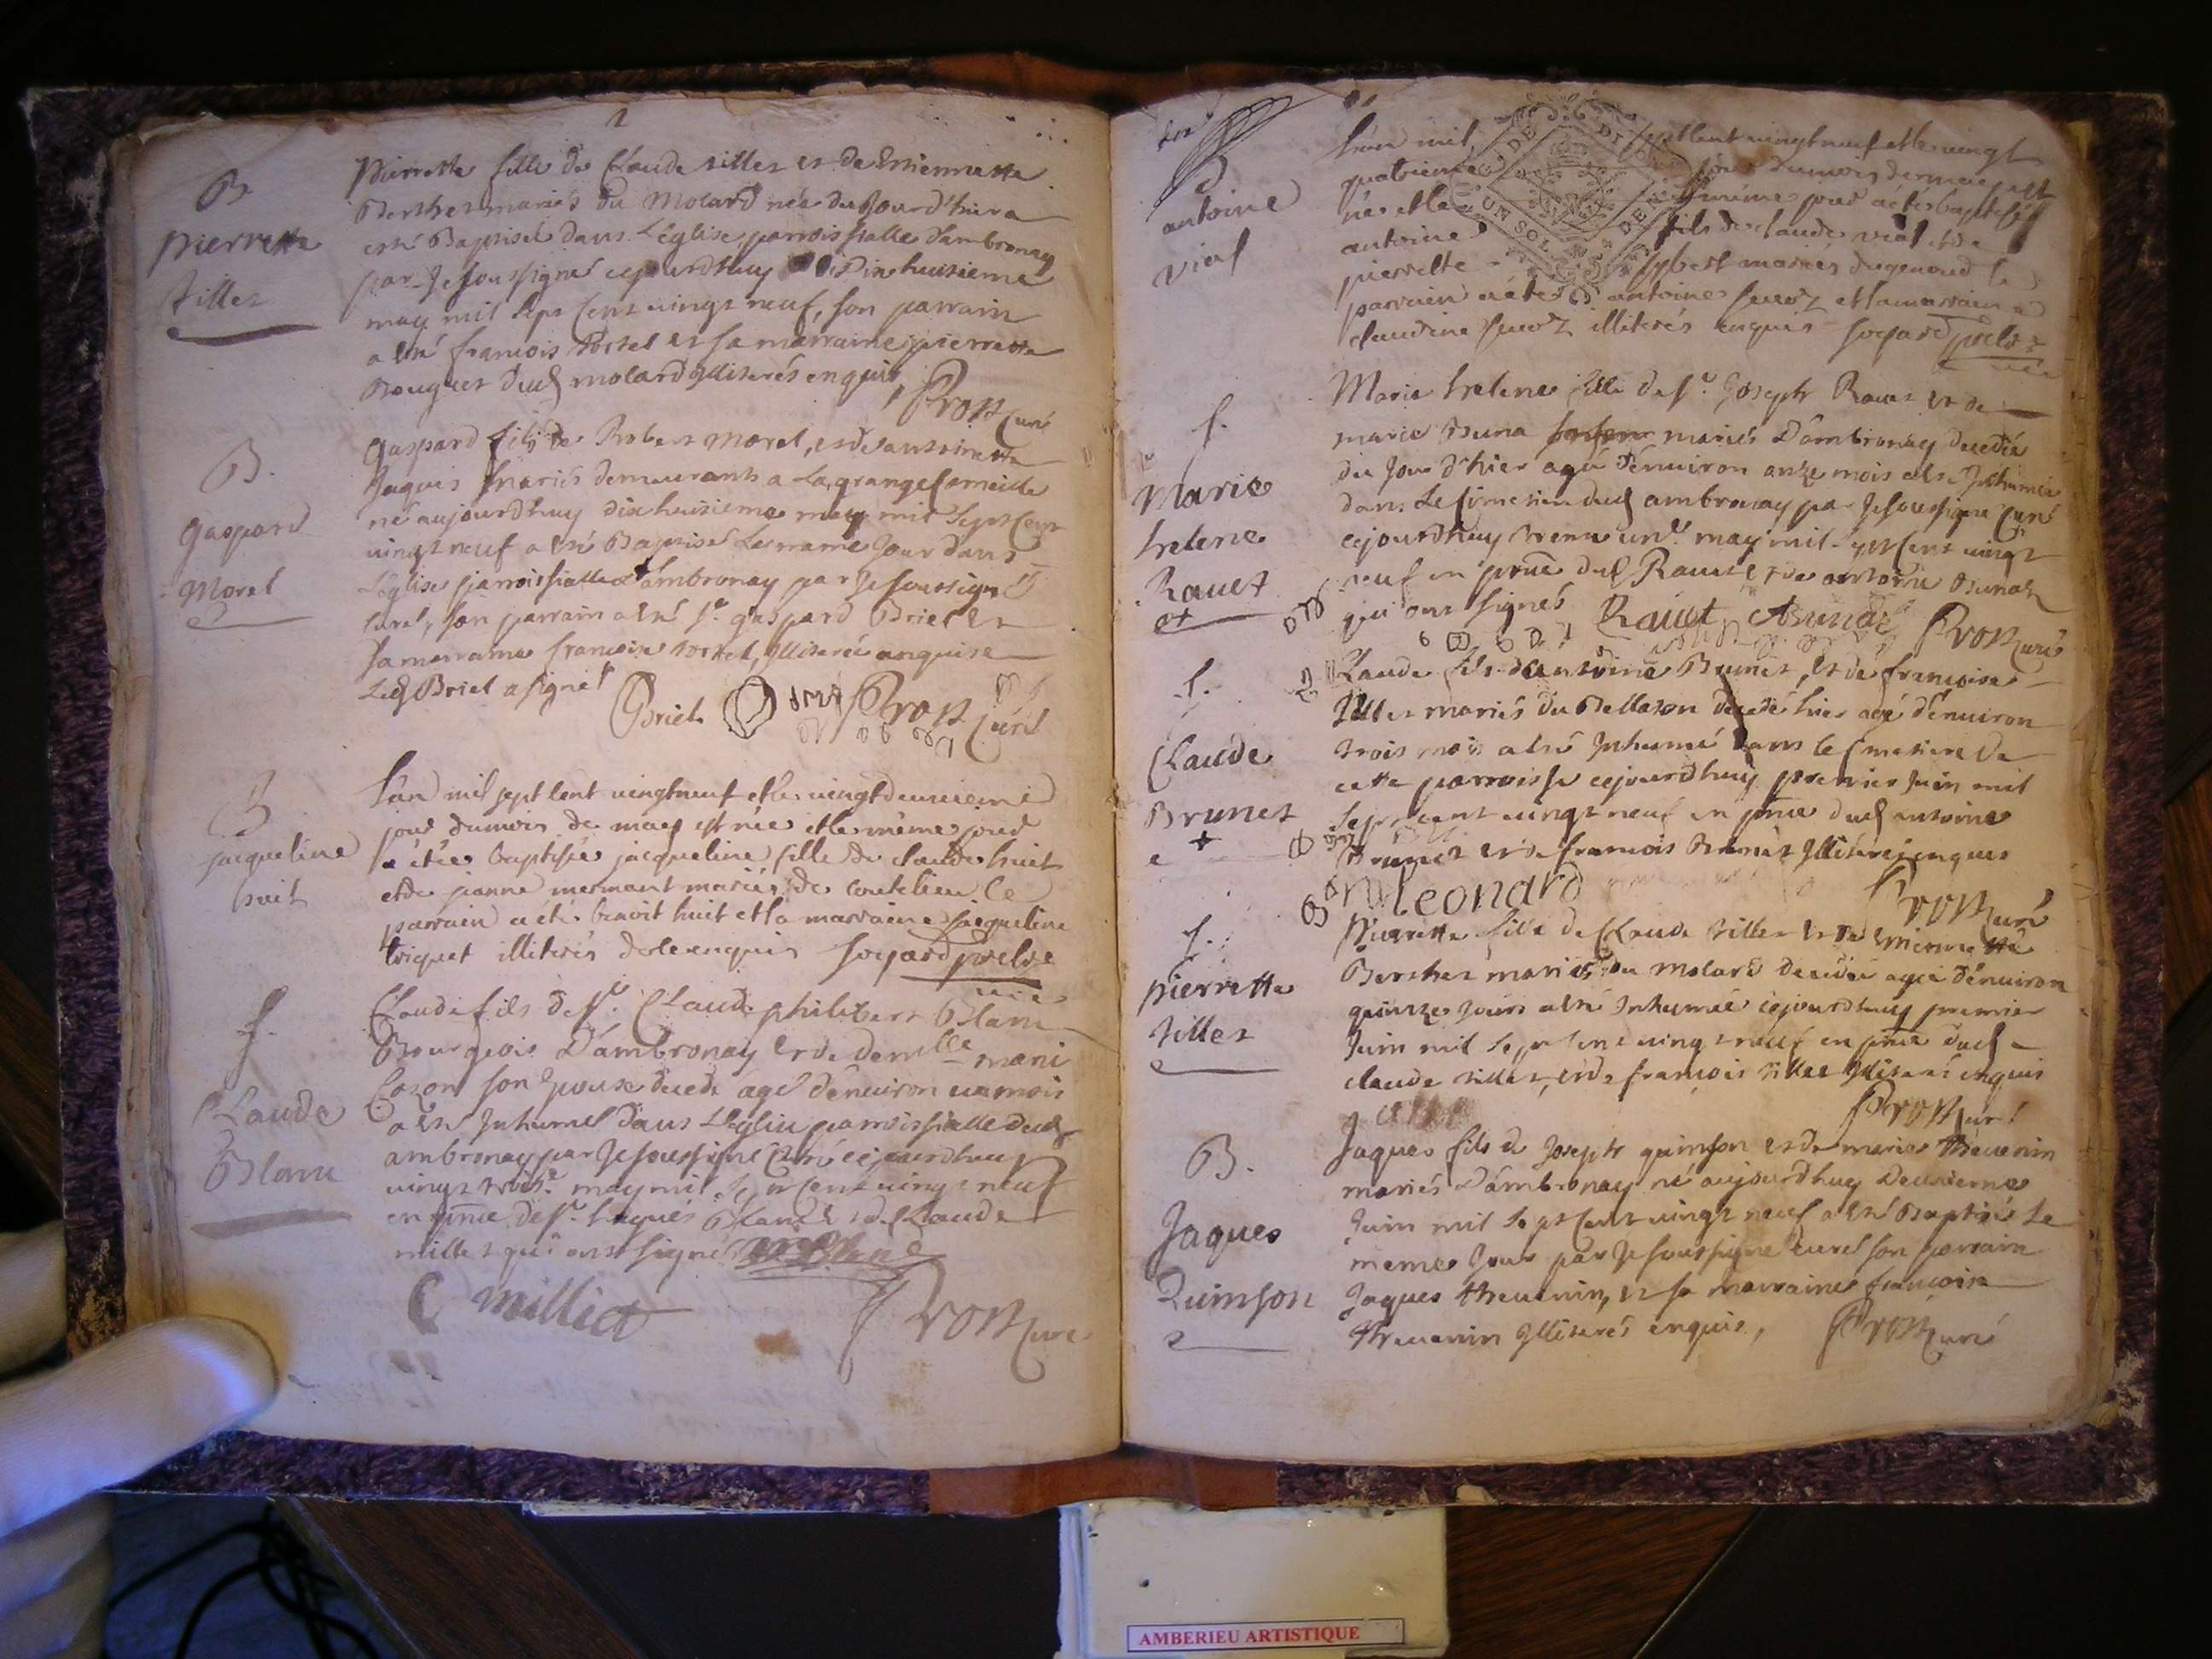 B
pierrette
tillet
Pierrette fille de Claude tillet et de Estiennette
Berthet mariés du Molard née du Jour d'hier a
esté Baptisée dans L'église parroissialle d'ambronay
par Je soussigné cejourdhuy Dix huitieme
may mil sept cent vingt neuf, son parrain
a esté francois tortel et sa marraine pierrette
Bouguet dud molard Illiterés enquis,
Pron curé
B.
gaspard
Morel
gaspard fils de Robert morel, et de antoinette
Jaquis mariés demeurants a La grange
né aujourdhuy dix huitieme may mil sept cent
vingt neuf a esté Baptisé Le meme Jour dans
L'église parroissialle d'ambronay par Je soussigné
curé, son parrain a esté sr. gaspard Briel et
sa marraine francoise tortel, Illiterée enquise
Led Briel a signé
Briel Pron curé
B
jacqueline
huit
L'an mil sept cent vingtneuf et le vingtdeuxieme
jour du mois de may est née et le même jour
a étée baptisée jacqueline fille de claude huit
et de janne mermant mariés de coutelieu le
parrain a été benoit huit et la marraine jacqueline
triquet illiterés de ce enquis
f.
Claude
Blanc
Claude fils de sr. Claude philibert Blanc
Bourgeois D'ambronay et de demlle marie
Cozon son Epouse decedé agé d'environ un mois
a esté Inhumé dans L'eglise parroissialle dud
ambronay par Je soussigné curé cejourdhuy
vingt trois. may mil sept cent vingt neuf
en pnce de sr. hugues Blanc et de Claude
milliet qui ont signé
C milliet Pron curé
B
antoine
vial
L'an mil sept cent vingt neuf et le vingt
quatrieme jour du mois de may est
né et le même jour a étés baptisé
antoine fils de claude vial et de
pierrette mariés du genoud le
parrain a été antoine et la marraine
claudine illiterés enquis
f.
Marie
helene
Rauet
Marie helene fille de sr. Joseph Rauet et de
marie Buna mariés D'ambronay decedée
du Jour d'hier agée d'environ onze mois a esté Inhumée
dans Le cimetiere dud ambronay par Je soussigné curé
cejourdhuy trente un. may mil sept cent vingt
neuf en pnce dud Rauet et de antoine Bunat
qui ont signés Rauet ABunat Pron curé
f.
Claude
Brunet
Claude fils d'antoine Brunet, et de francoise
tillet mariés du Bellaton decedé hier agé d'environ
trois mois a esté Inhumé dans le cimetiere de
cette parroisse cejourdhuy premier Juin mil
sept cent vingt neuf en pnce dud antoine
Brunet et de francois Brunet Illiterés enquis
Leonard Pron curé
f.
pierrette
tillet
Pierrette fille de Claude tillet et de Estiennette
Berthet mariés du molard decedée agée d'environ
quinze Jours a esté Inhumée cejourdhuy premier
Juin mil sept cent vingt neuf en pnce dud
claude tillet, et de françois tillet Illiterés enquis
Pron curé
B.
Jaques
Quinson
Jaques fils de Joseph quinson et de marie thevenin
mariés D'ambronay né aujourdhuy Deuxieme
Juin mil sept cent vingt neuf a esté Baptisé Le
meme Jour par Je soussigné curé son parrain
Jaques thevenin, et sa marraine francoise
thevenin Illiterés enquis, Pron curé
AMBERIEU ARTISTIQUE